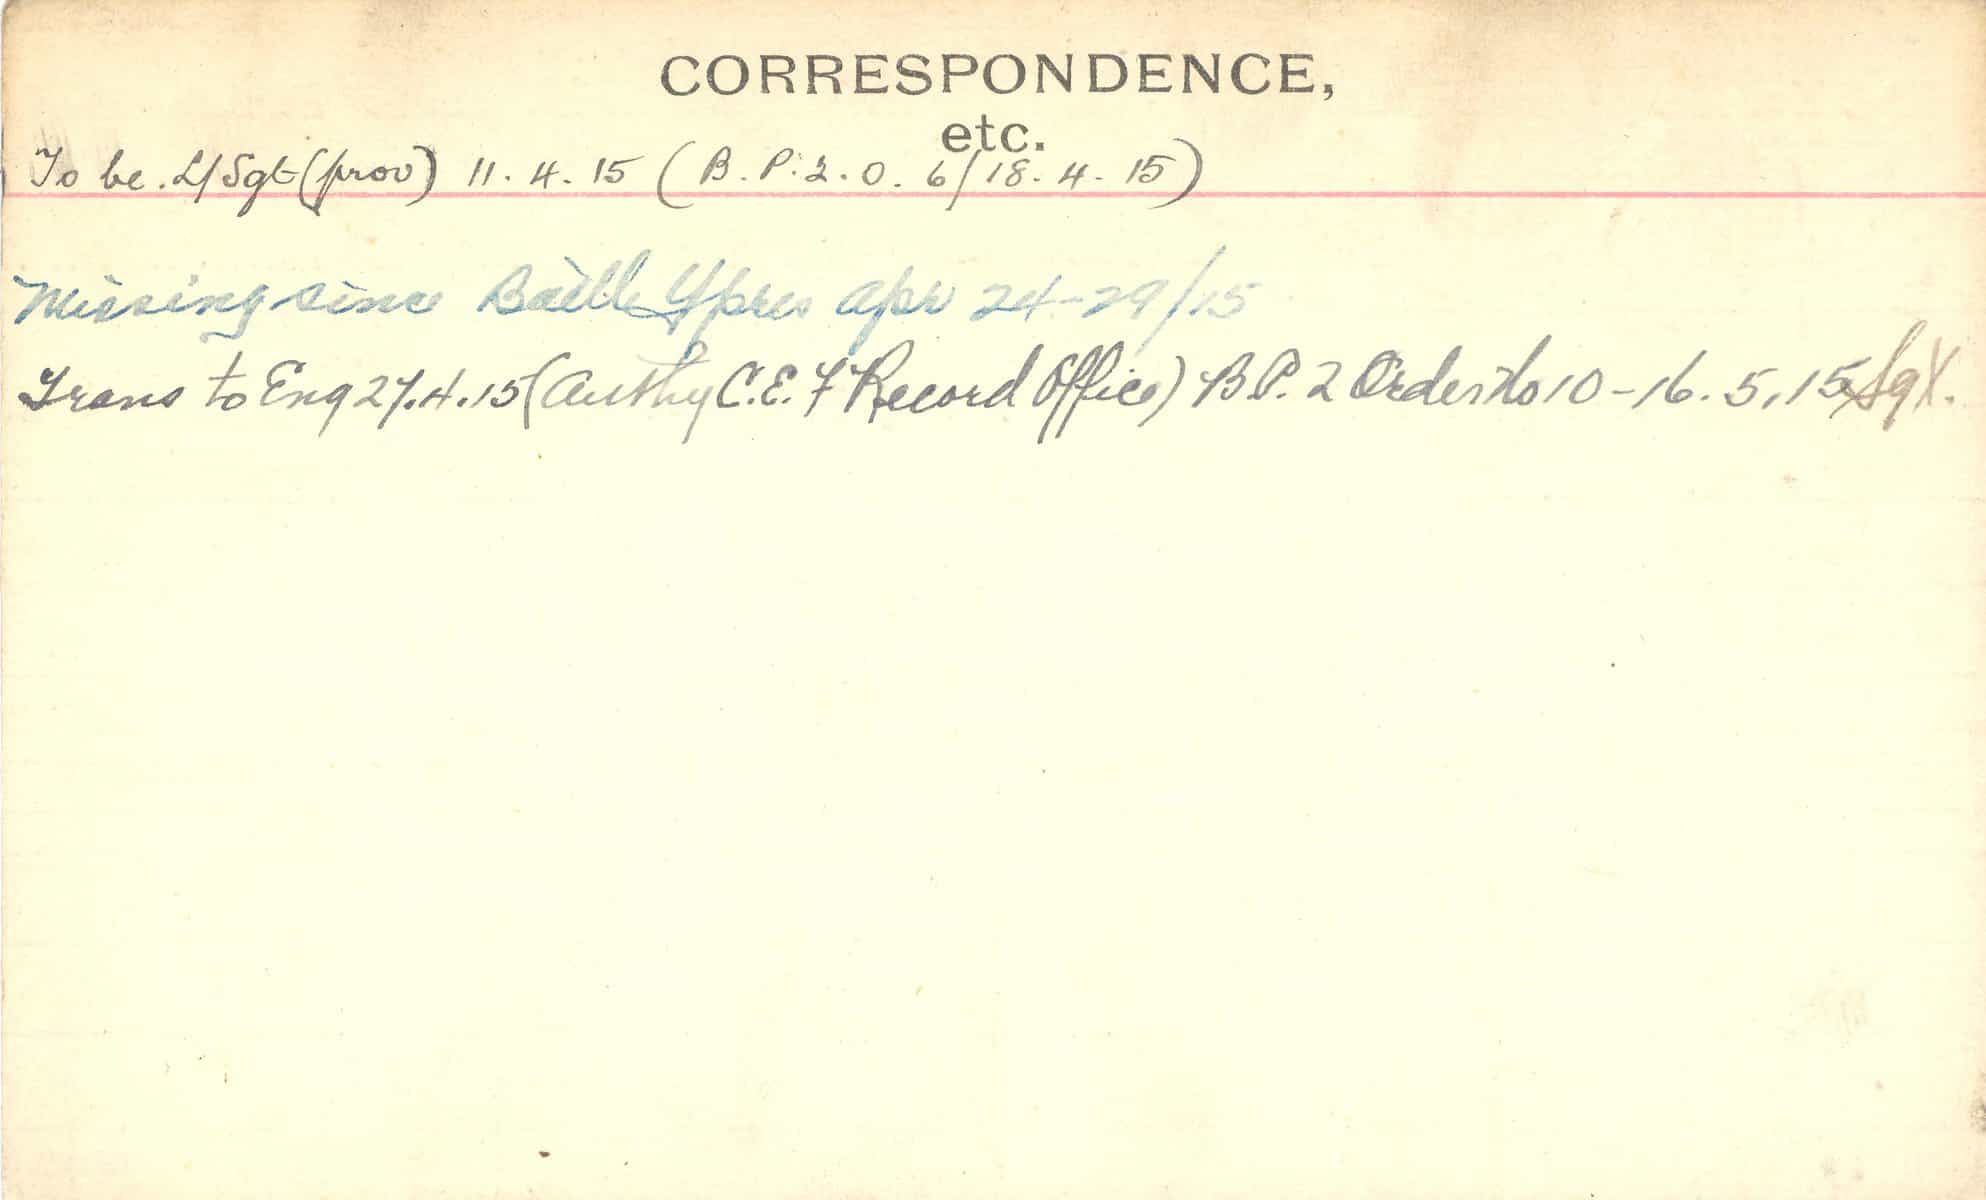 CORRESPONDENCE,
etc.
To be. L/Sgt (prov) 11. 4. 15 (B. P. 2. O. 6/18. 4. 15)
Missing since Battle Ypres Apr 24-29/15
Trans to Eng 27.4.15 (Authy C.E.F Record Office) B.P. 2 Order No 10 - 16. 5. 15